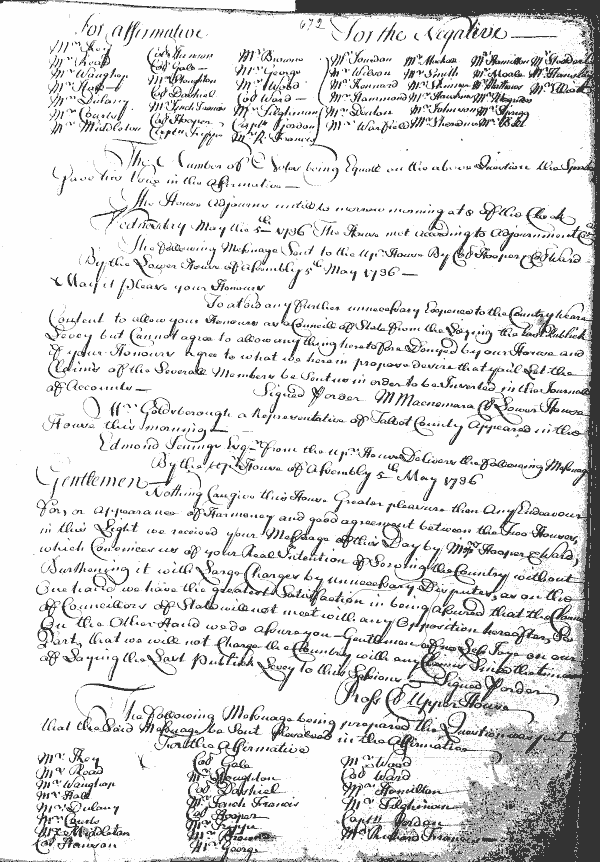 For affirmative 672 For the Negative
Mr Key Col Hanson Mr Browne Mr Jourdan Mr Mackall Mr Hamilton
Mr Read Col Gale Mr George Mr Wilson Mr Smith Mr Hamilton
Mr Waughop Mr Stoughton Mr Wood Mr Kennard Mr Skinner Mr Mathews
Mr Hall Col Dashiel Col Ward Mr Hammond Mr Hawkins
Mr Dulany Mr Lynch Francis Mr Tilghman Mr Denton Mr Johnson Mr Sprigg
Mr Courts Col Hooper Capt Jordan Mr Warfield
Mr Middleton Mr R Francis
The Number of Votes being Equall on the above Question the Speaker
gave his Voice in the Affirmative
The House adjourns untill to morrow morning at 8 of the Clock
Wednesday May the 5th 1736 The House met according to Adjournment
The following Message Sent to the Upr House By Col Hooper & Col Ward
By the Lower House of Assembly 5th May 1736
May it please your Honours
To avoid any further unnecessary Expence to the Country We are
Consent to allow your Honours as a Councill of State from the Laying the Last Publick
Levey but Cannot agree to allow any thing heretofore Denyed by our House and
if your Honours agree to what we herein propose desire that you'l Let the
Claims of the Severall Members be Sent us in order to be Inserted in the Journall
of Accounts Signed P order M Macnemara Cl Lower House
Mr Goldsborough a Representative of Talbot County Appeared in the
House this morning
Edmond Jenings Esqr from the Upr House Delivers the following Message
By the Upr House of Assembly 5th May 1736
Gentlemen
Nothing Can give this House Greater pleasure then Any Endeavour
for, or appearance of Harmoney and good agreement between the Two Houses,
in this Light we received your Message of this Day by Messrs Hooper & Ward,
which Convinces us of your Real Intention of Serving the Country without
Burthening it with Large Charges by unnecessary Disputes, as on the
One hand we have the greatest Satisfaction in being assured that the Claims
of Councillors of State will not meet with any Opposition hereafter, So
On the Other Hand we do assure you Gentlemen on our
Part, that we will not Charge the Country with any Claims Since the time
of Laying the Last Publick Levey to this Sessions Signed P order
Ross Cl Upper House
The following Message being prepared the Question was put
that the Said Message be Sent Resolved in the Affirmative
For the Affirmative
Mr Key Col Gale Mr Wood
Mr Read Mr Stoughton Col Ward
Mr Waughop Col Dashiel Mr Hamilton
Mr Hall Mr Lynch Francis Mr Tilghman
Mr Dulany Col Hooper Capt Jordan
Mr Courts Mr Richard Francis
Mr Middleton Mr Browne
Col Hanson Mr George